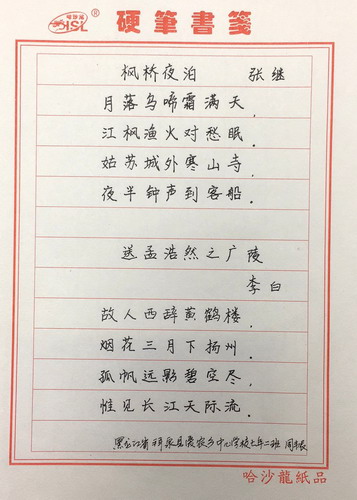 哈沙龙 HSL ®
硬筆書箋
枫桥夜泊 张继
月落乌啼霜满天,
江枫渔火对愁眠.
姑苏城外寒山寺,
夜半钟声到客船.
送孟浩然之广陵
李白
故人西辞黄鹤楼,
烟花三月下扬州.
孤帆远影碧空尽,
惟见长江天际流.
黑龙江省 县 乡中心学校七年二班 周
哈沙龍纸品